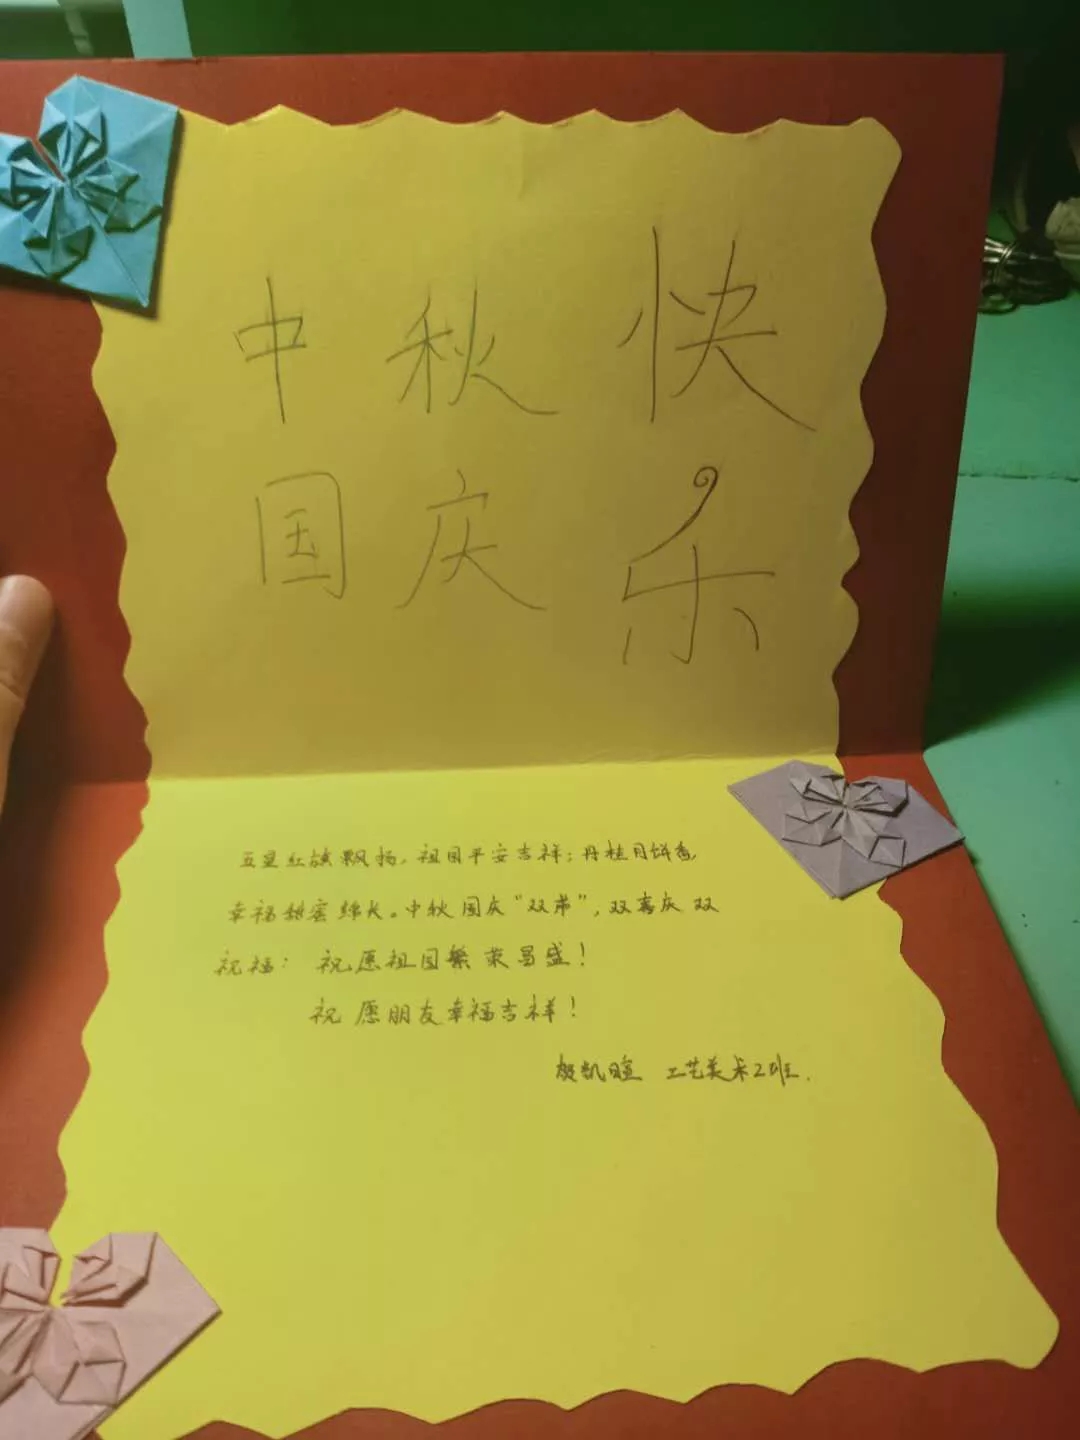 中秋快
国庆乐
五星红旗飘扬，祖国平安吉祥；丹桂月饼香，
幸福甜蜜绵长。中秋国庆“双节”，双喜庆双
祝福： 祝愿祖国繁荣昌盛！
祝愿朋友幸福吉祥！
凯暄 工艺美术2班.